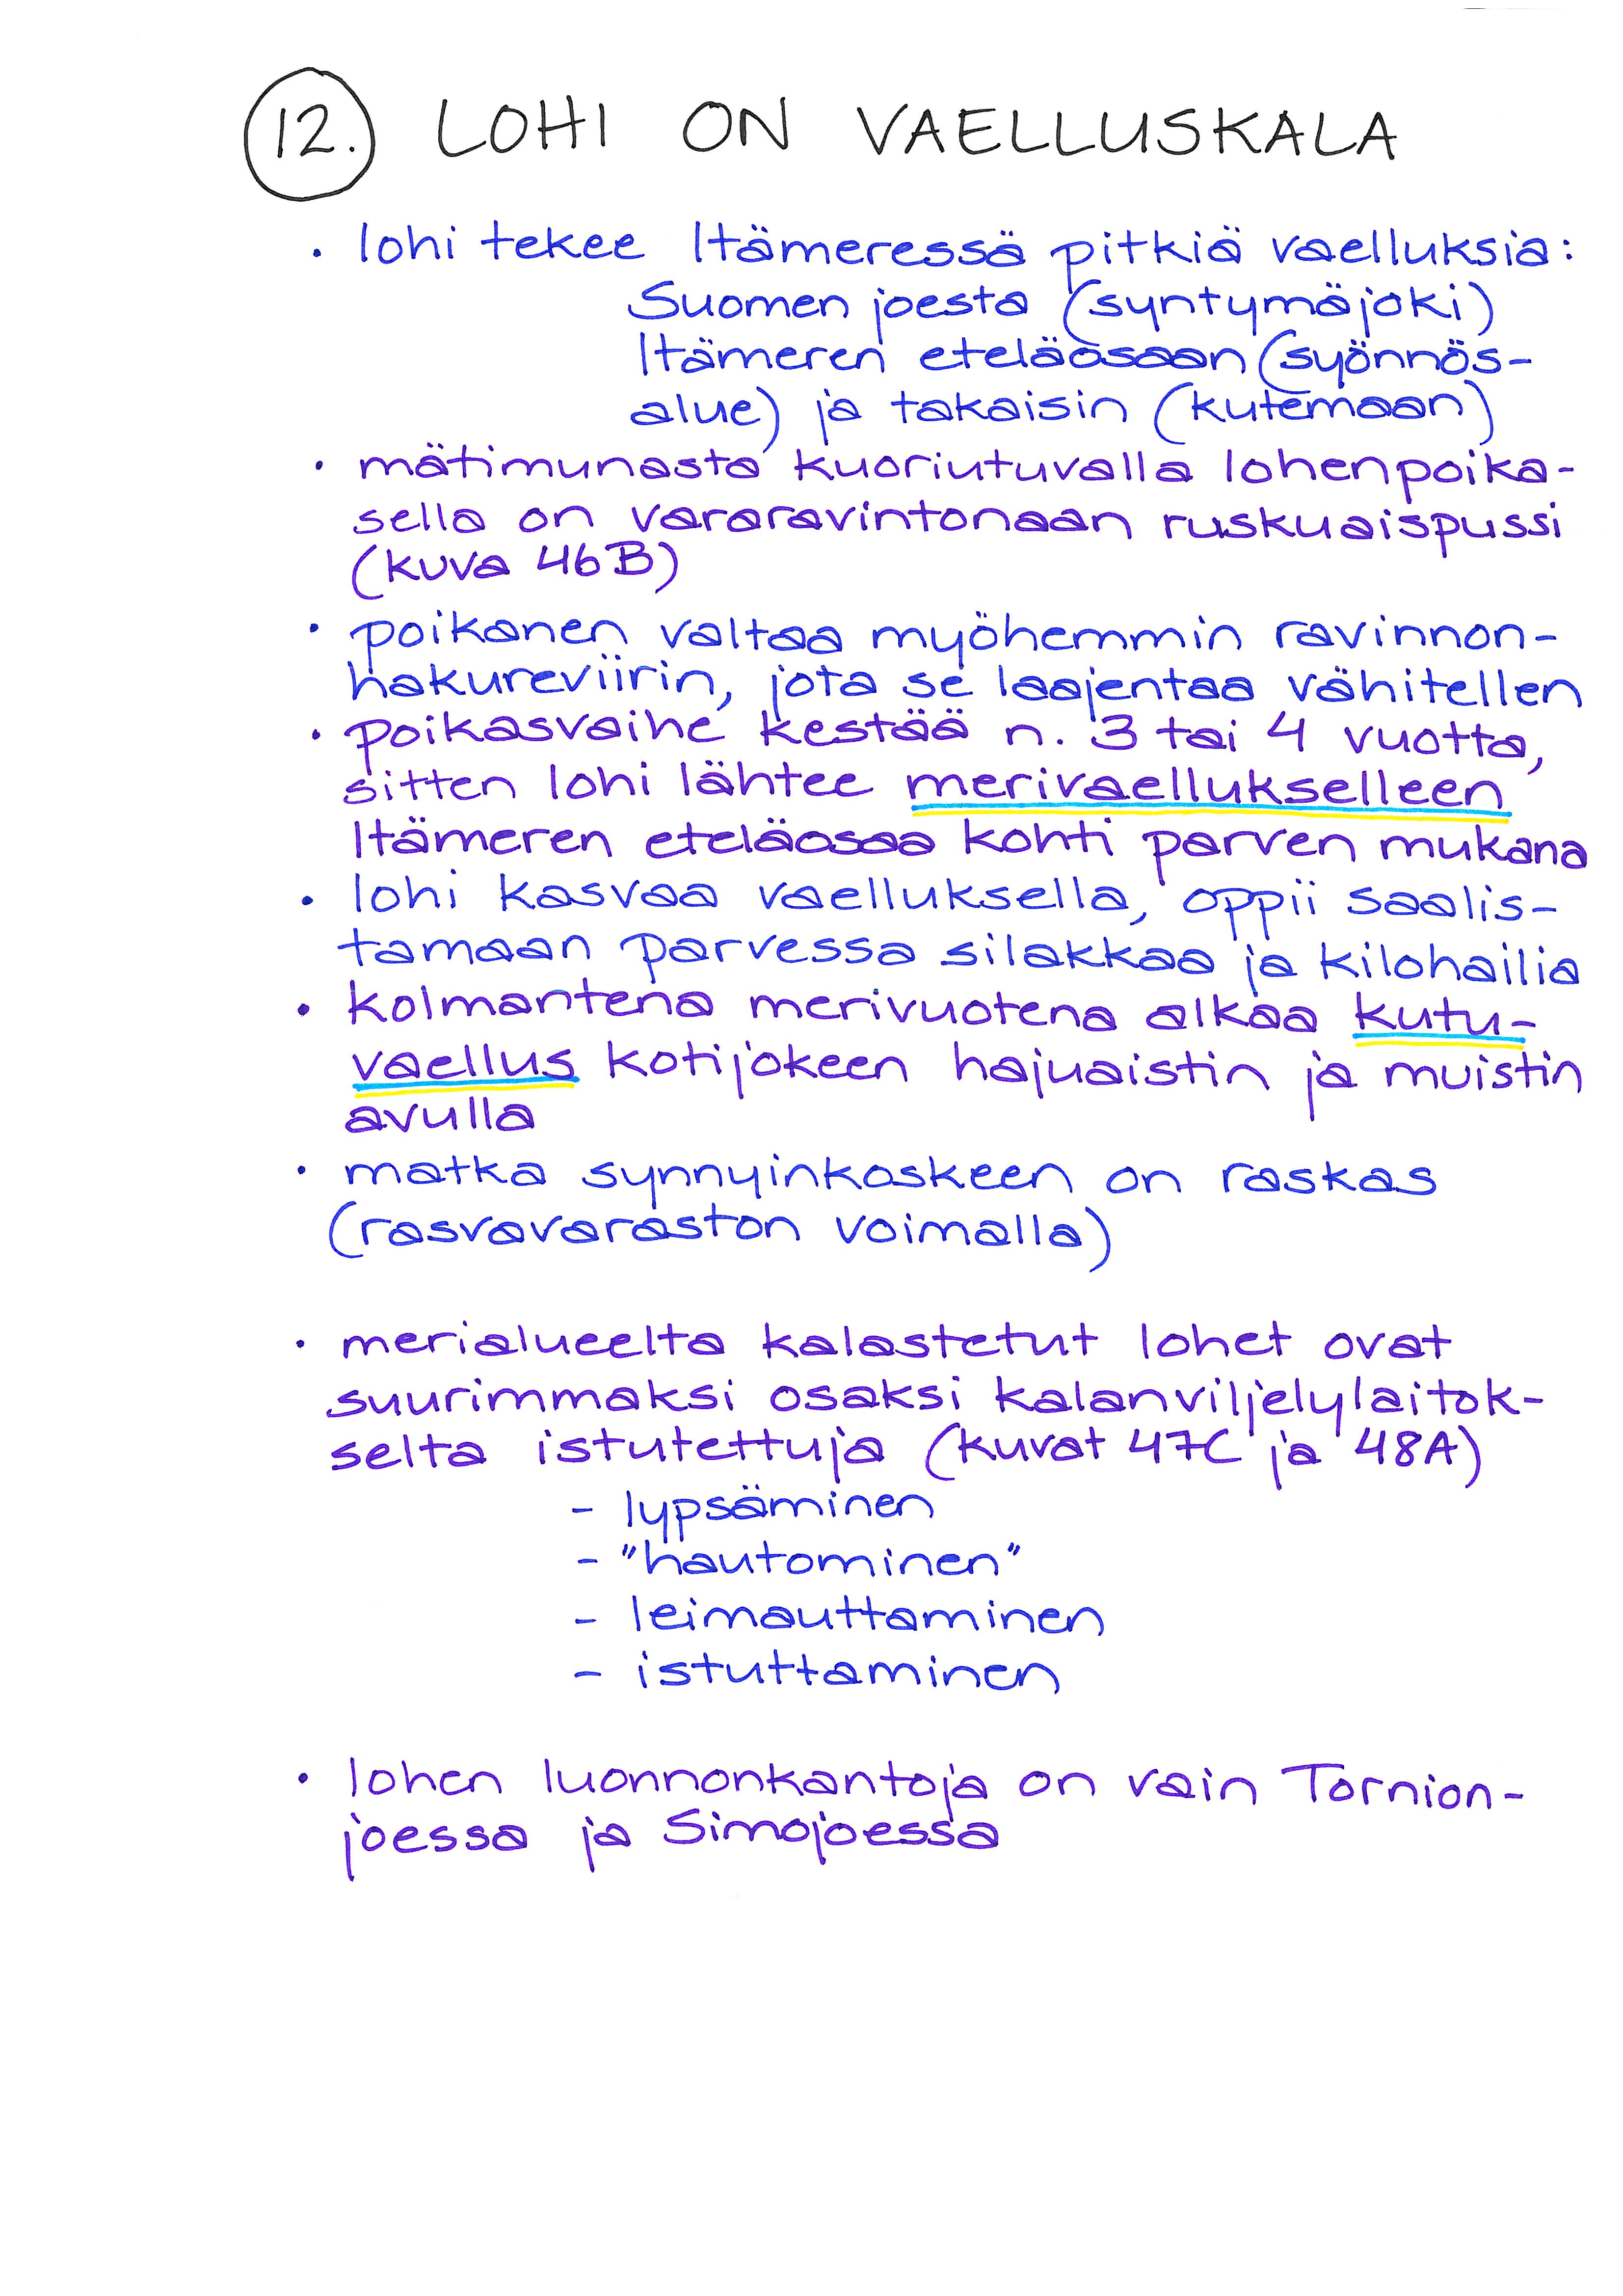 12. LOHI ON VAELLUSKALA
• lohi tekee Itämeressä pitkiä vaelluksia:
Suomen joesta (syntymäjoki)
Itämeren eteläosaan (syönnös-
alue) ja takaisin (kutemaan)
• mätimunasta kuoriutuvalla lohenpoika-
sella on vararavintonaan ruskuaispussi
(kuva 46B)
• poikanen valtaa myöhemmin ravinnon-
hakureviirin, jota se laajentaa vähitellen
• poikasvaihe kestää n. 3 tai 4 vuotta,
sitten lohi lähtee merivaellukselleen
Itämeren eteläosaa kohti parven mukana
• lohi kasvaa vaelluksella, oppii saalis-
tamaan parvessa silakkaa ja kilohailia
• kolmantena merivuotena alkaa kutu-
vaellus kotijokeen hajuaistin ja muistin
avulla
• matka synnyinkoskeen on raskas
(rasvavaraston voimalla)
• merialueelta kalastetut lohet ovat
suurimmaksi osaksi kalanviljelylaitok-
selta istutettuja (kuvat 47C ja 48A)
- lypsäminen
- "hautominen"
- leimauttaminen
- istuttaminen
• lohen luonnonkantoja on vain Tornion-
joessa ja Simojoessa